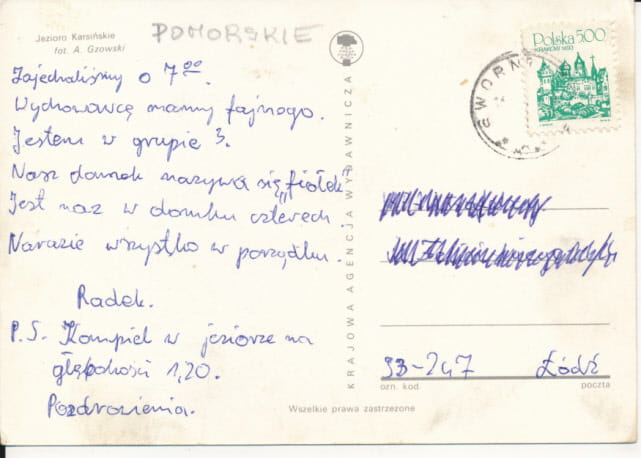 Jezioro Karsińskie
fot. A. Gzowski
POMORSKIE
Zajechaliśmy o 7⁰⁰.
Wychowawcę mamy fajnego.
Jestem w grupie 3.
Nasz domek nazywa się „fiołek"
Jest nas w domku czterech.
Narazie wszystko w porządku.
Radek.
P.S. Kompiel w jeziorze na
głębokości 1,20.
Pozdrowienia.
KRAJOWA AGENCJA WYDAWNICZA
Polska 500
KRAKÓW 1493
93-247 Łódź
ozn. kod. poczta
Wszelkie prawa zastrzeżone